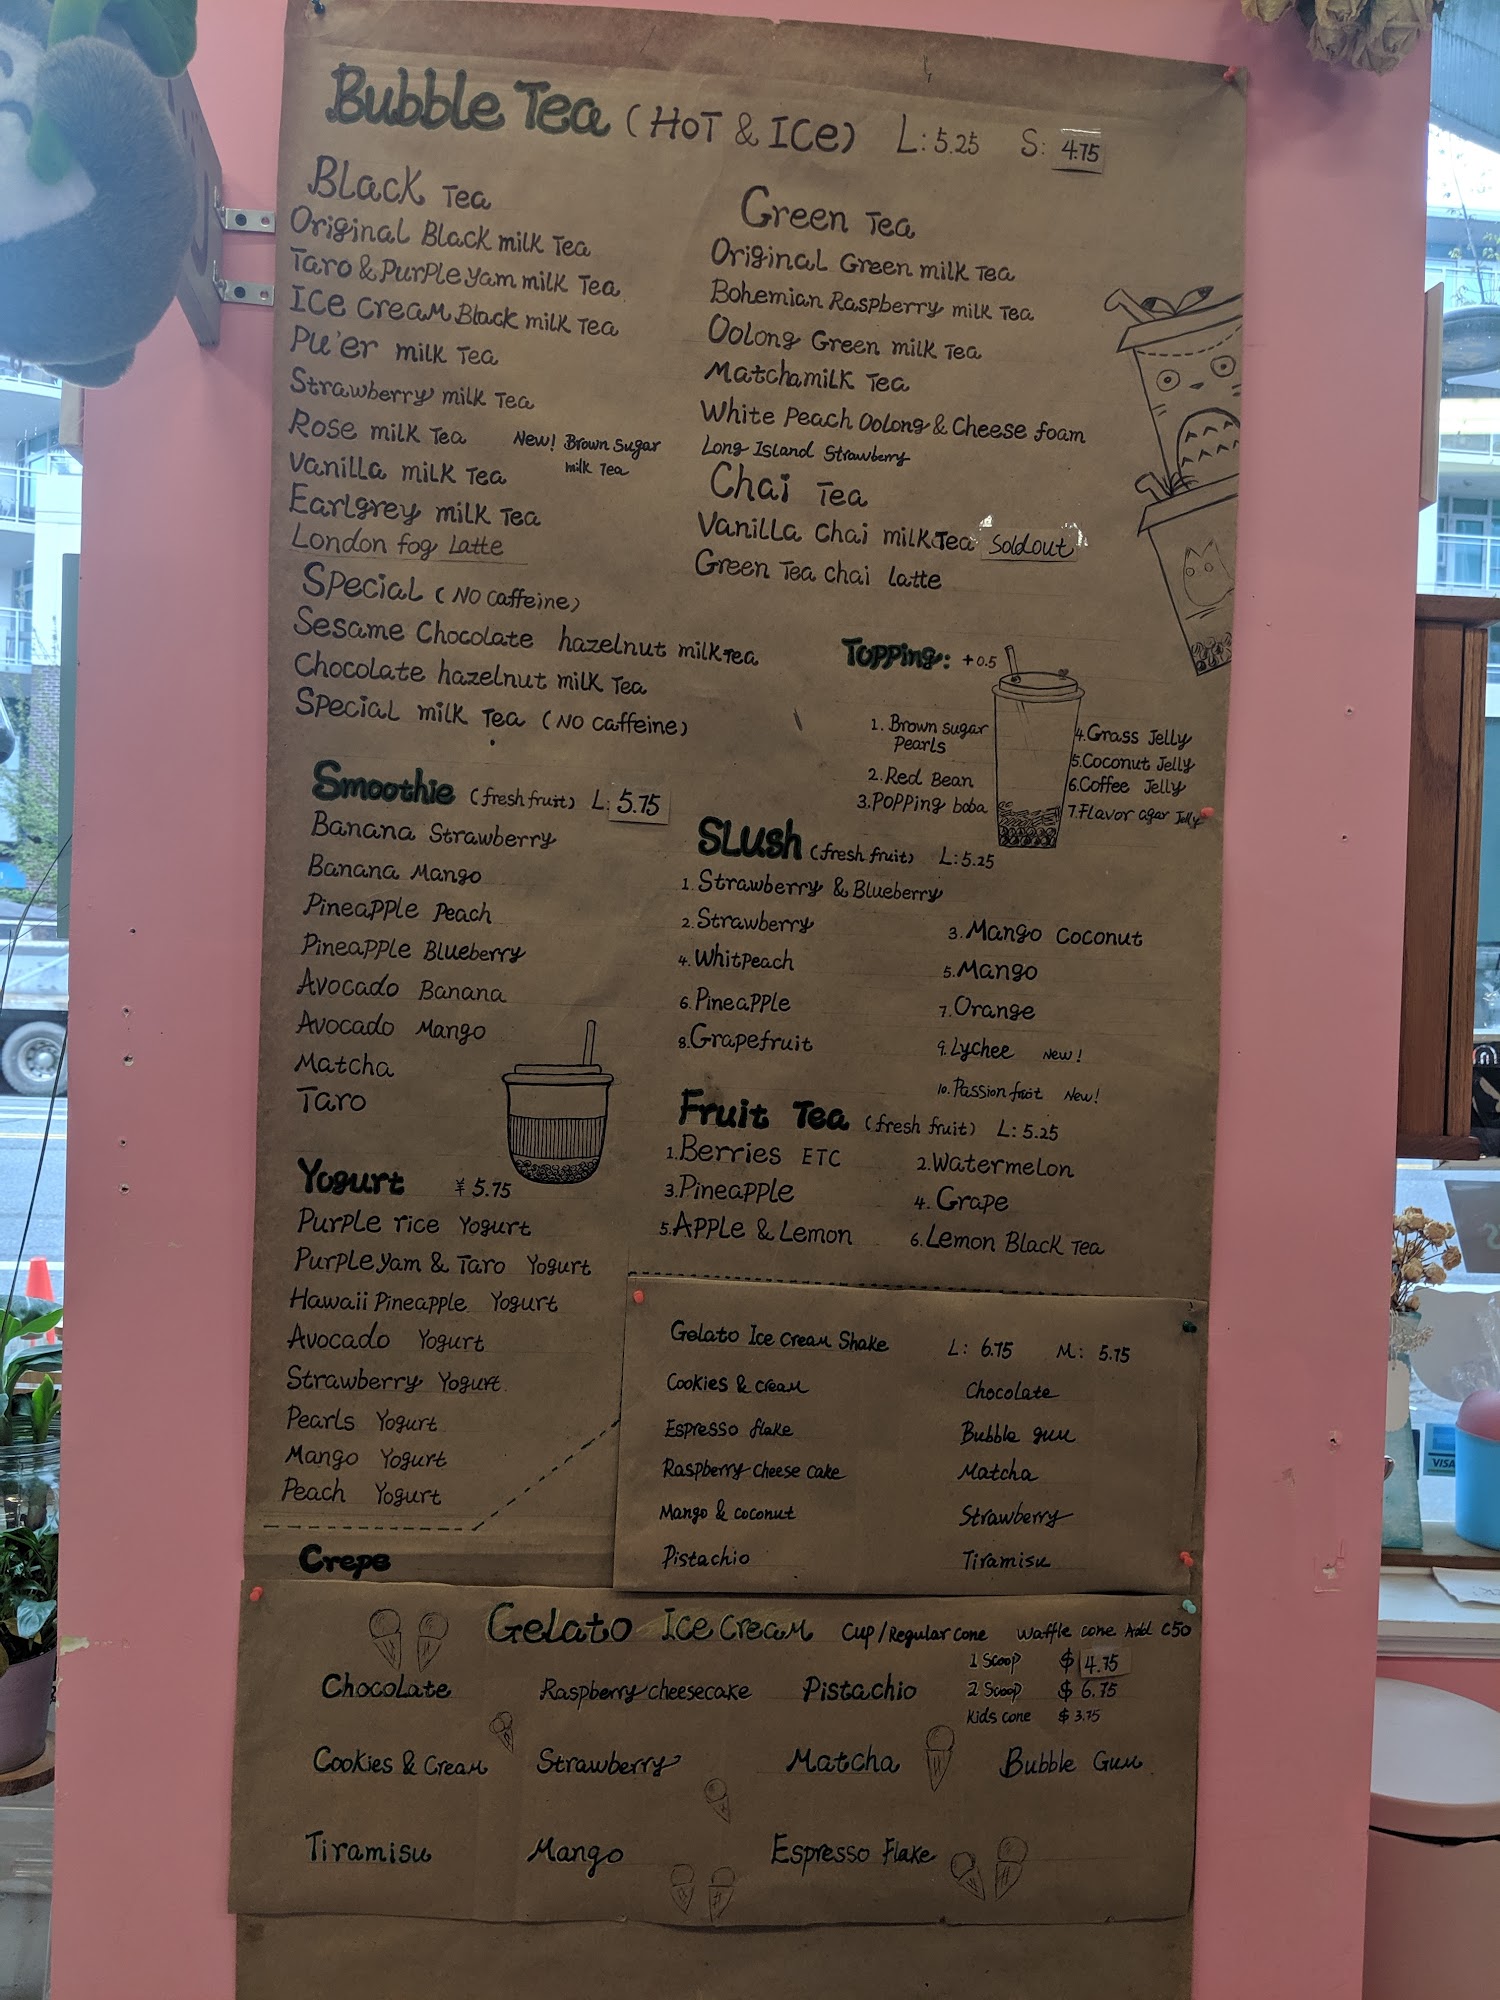 Bubble Tea (HOT & ICe) L: 5.25 S: 4.75
Black Tea
Original Black milk Tea
Taro & Purple yam milk Tea
ICe cream Black milk Tea
Pu'er milk Tea
Strawberry milk Tea
Rose milk Tea
New! Brown Sugar
milk Tea
Vanilla milk Tea
Earlgrey milk Tea
London fog Latte
Green Tea
Original Green milk Tea
Bohemian Raspberry milk Tea
Oolong Green milk Tea
Matcha milk Tea
White Peach Oolong & Cheese foam
Long Island Strawberry
Chai Tea
Vanilla Chai milk Tea Sold out
Green Tea chai latte
Special (NO caffeine)
Sesame Chocolate hazelnut milk Tea
Chocolate hazelnut milk Tea
Special milk Tea (NO caffeine)
Topping: +0.5
1. Brown sugar
Pearls
2. Red Bean
3. Popping boba
4. Grass Jelly
5. Coconut Jelly
6. Coffee Jelly
7. Flavor agar Jelly
Smoothie (fresh fruit) L: 5.75
Banana Strawberry
Banana Mango
Pineapple Peach
Pineapple Blueberry
Avocado Banana
Avocado Mango
Matcha
Taro
Slush (fresh fruit) L: 5.25
1. Strawberry & Blueberry
2. Strawberry
3. Mango Coconut
4. Whitpeach
5. Mango
6. Pineapple
7. Orange
8. Grapefruit
9. Lychee New!
10. Passion fruit New!
Fruit Tea (fresh fruit) L: 5.25
1. Berries ETC
2. Watermelon
3. Pineapple
4. Grape
5. Apple & Lemon
6. Lemon Black Tea
Yogurt ¥ 5.75
Purple rice Yogurt
Purple yam & Taro Yogurt
Hawaii Pineapple Yogurt
Avocado Yogurt
Strawberry Yogurt
Pearls Yogurt
Mango Yogurt
Peach Yogurt
Crepe
Gelato Ice cream Shake L: 6.75 M: 5.75
Cookies & cream Chocolate
Espresso flake Bubble gum
Raspberry cheese cake Matcha
Mango & coconut Strawberry
Pistachio Tiramisu
Gelato Ice cream Cup/Regular cone Waffle cone Add c50
1 Scoop $ 4.75
2 Scoop $ 6.75
Kids cone $ 3.75
Chocolate Raspberry cheesecake Pistachio
Cookies & Cream Strawberry Matcha Bubble Gum
Tiramisu Mango Espresso Flake
VISA